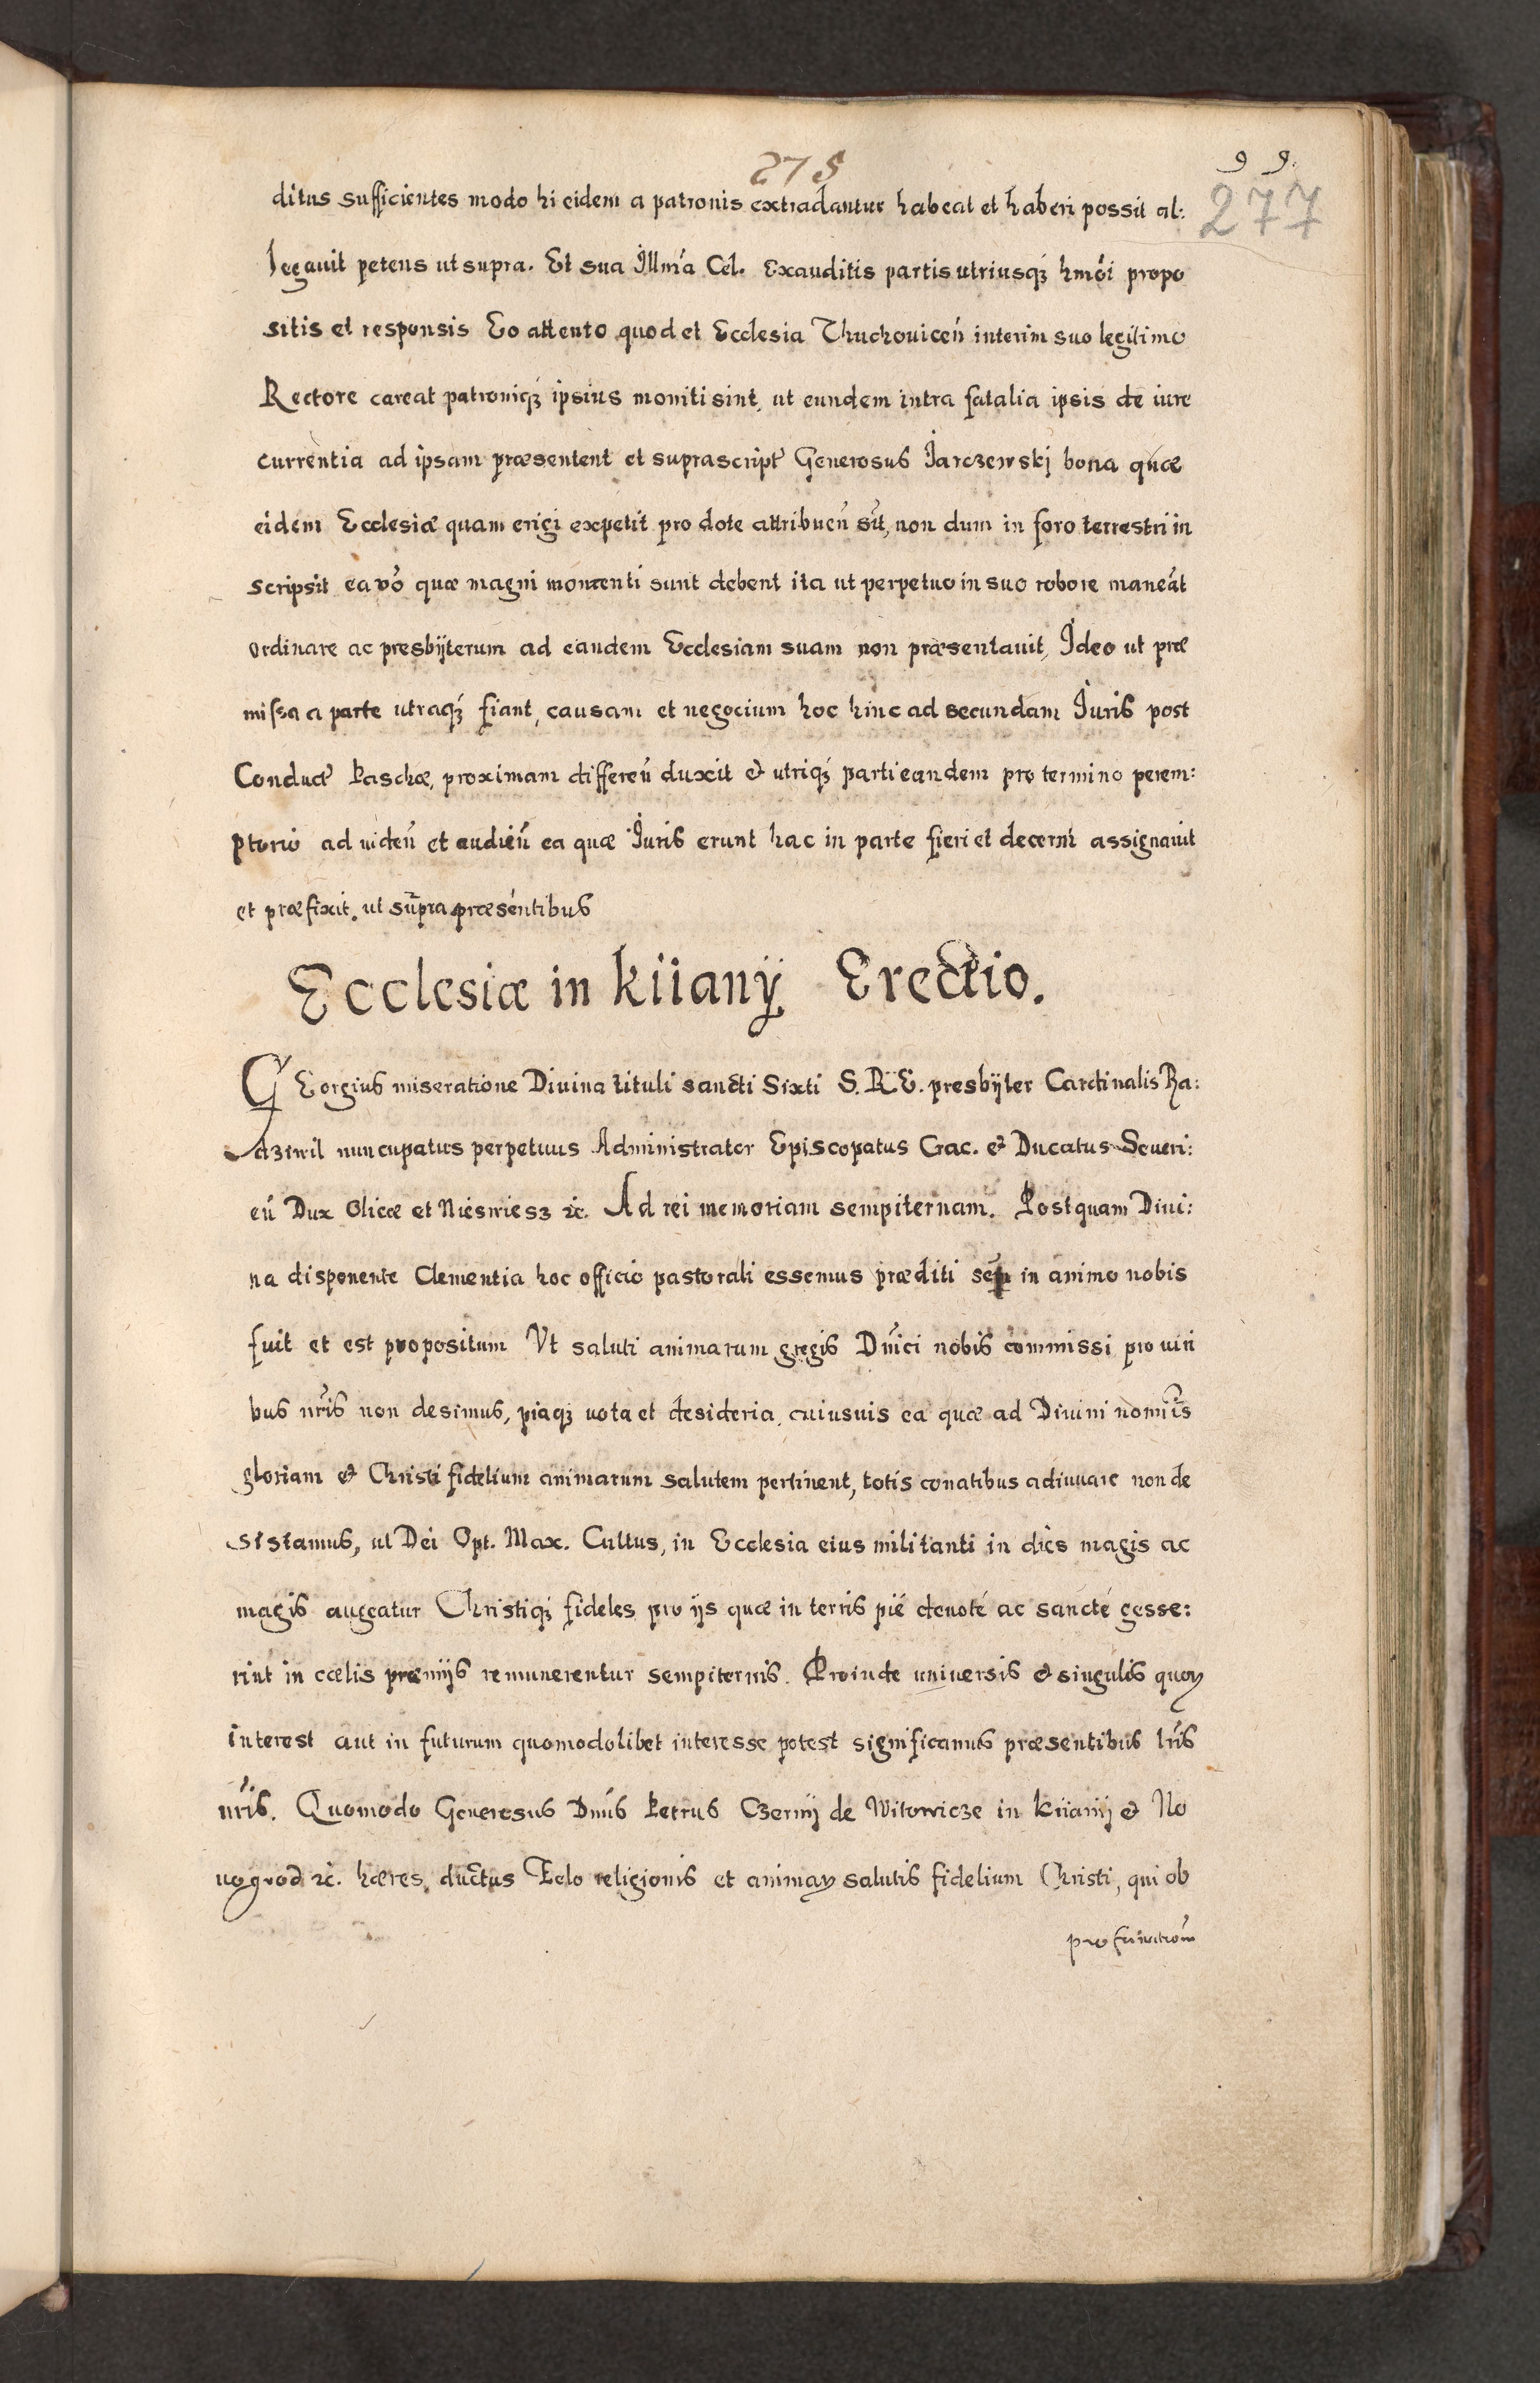 275
99.
277
ditus sufficientes modo hi eidem a patronis extradantur habeat et haberi possit al:
legauit petens ut supra. Et sua Illma Cel. Exauditis partis utriusqȝ hmoi propo
sitis et responsis Eo attento quod et Ecclesia Thuchouiceñ interim suo legitimo
Rectore careat patroniqȝ ipsius moniti sint, ut eundem intra fatalia ipsis de iure
currentia ad ipsam præsentent et suprascript Generosus Jarczewski bona quæ
eidem Ecclesiæ quam erigi expetit pro dote attribueñ sut, non dum in foro terrestri in
scripsit ea vo quæ magni momenti sunt debent ita ut perpetuo in suo robore maneat
ordinare ac presbijterum ad eandem Ecclesiam suam non præsentauit, Ideo ut præ
missa a parte utraqȝ fiant, causam et negocium hoc hinc ad secundam Iuris post
Conduct Paschæ, proximam differeñ duxit & utriqȝ parti eandem pro termino perem:
ptorio ad uideñ et audieñ ea quæ Iuris erunt hac in parte fieri et decerni assignauit
et præfixit. ut supra præsentibus
Ecclesiæ in Kiianÿ Erectio.
GEorgius miseratione Diuina tituli sancti Sixti S. R. E. presbÿter Cardinalis Ra:
dziwil nuncupatus perpetuus Administrator Episcopatus Crac. & Ducatus Seueri:
eñ Dux Olicæ et Nieswiesz ꝛc. Ad rei memoriam sempiternam. Postquam Diui:
na disponente Clementia hoc officio pastorali essemus præditi semp in animo nobis
fuit et est propositum Vt saluti animarum gregis Dñici nobis commissi pro uiri
bus nris non desimus, piaqȝ uota et desideria, cuiusuis ea quæ ad Diuini nomis
gloriam & Christi fidelium animarum salutem pertinent, totis conatibus adiuuare non de
sistamus, ut Dei Opt. Max. Cultus, in Ecclesia eius militanti in dies magis ac
magis augeatur Christiqȝ fideles pro ijs quæ in terris pié deuoté ac sancté gesse:
rint in cælis præmijs remunerentur sempiternis. Proinde uniuersis & singulis quoꝝ
interest aut in futurum quomodolibet interesse potest significamus præsentibus lris
nris. Quomodo Generosus Dnus Petrus Czernÿ de Witowicze in Kiianÿ & No
uogrod ꝛc. hæres, ductus Zelo religionis et animaꝝ salutis fidelium Christi, qui ob